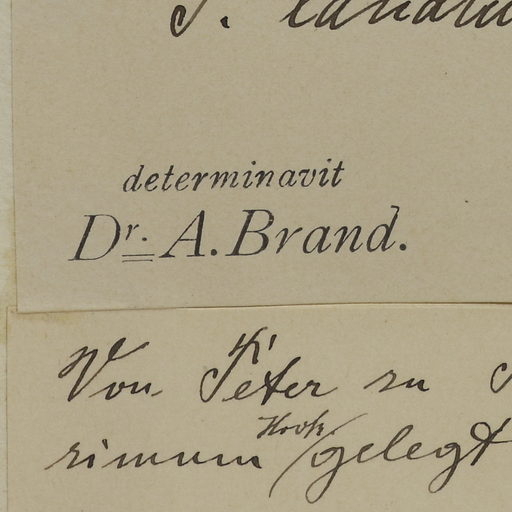 determinavit
Dr. A. Brand.
Von Peter zu
rimum Hook gelegt